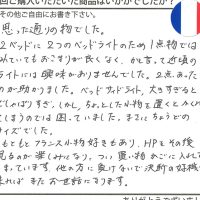 回ご購入いただいた商品はいかがでしたか?
その他ご自由にお書き下さい。
思った通りの物でした。
2ベッドに2つのベッドライトのため1点物では
おいていてもおさまりが良くなく、かと言って近頃の
ライトには興味がありませんでした。2点あった
のが助かりました。ベッドサイドライト、大きすぎると
しばりすぎ、しかし、ちょっとした物を置くとみえ
てしまうのでは困っていました。まさにちょうどの
サイズでした。
もともとフランス小物好きもあり、HPをその後
見るのが楽しみになり、つい買い物かごに入れて
ています。他の方に負けないで決断の好機が
来れば またお世話になります。